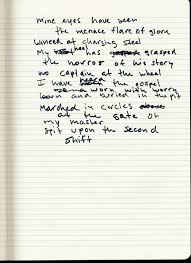 mine eyes have seen
the menace flare of glory
at charging steel
My has grasped
the horror of his story
no captain at the wheel
I have the gospel
worn with worry
born and buried in the pit
Marched in circles
at the gate of
my master
spit upon the second
shift